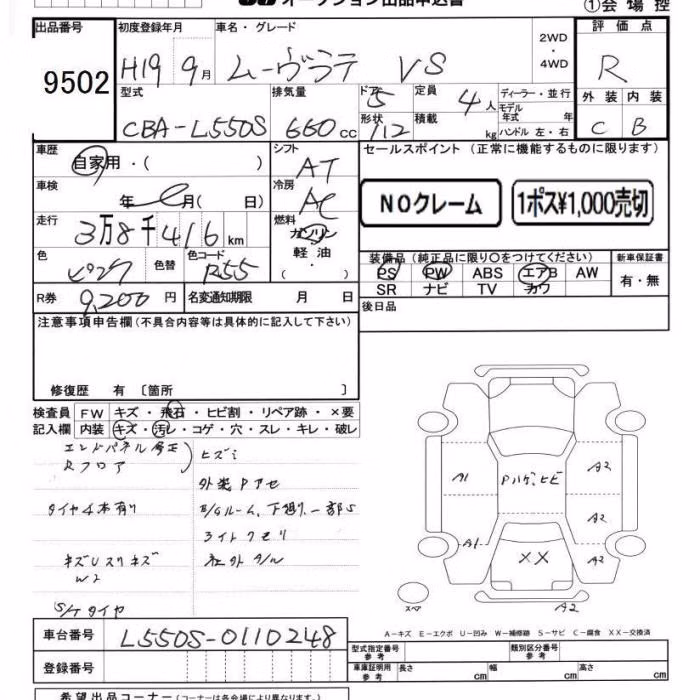 オークション出品申込書
①会場控
出品番号 初度登録年月 車名・グレード 2WD・4WD 評価点
9502 H19 9月 ムーヴラテ VS R
型式 排気量 ドア 定員 ディーラー・並行 外装 内装
CBA-L550S 660cc 5 4人 モデル年式 年 C B
形状 積載 kg ハンドル 左・右
112
車歴 シフト セールスポイント (正常に機能するものに限ります)
自家用・( ) AT
車検 冷房 NOクレーム 1ポス¥1,000売切
年 月( 日) AC
走行 燃料
3万8千416km ガソリン
軽油
色 色替 色コード 装備品(純正品に限り〇をつけてください) 新車保証書
ピンク R55 PS PW ABS エアB AW 有・無
SR ナビ TV カワ
R券 9,200円 名変通知期限 月 日 後日品
注意事項申告欄(不具合内容等は具体的に記入して下さい)
修復歴 有 〔箇所 〕
検査員 FW キズ・飛石・ヒビ割・リペア跡・×要
記入欄 内装 キズ・汚レ・コゲ・穴・スレ・キレ・破レ
エンドパネル修正
Rフロア
ヒズミ
外装Pアセ
タイヤ4本有り
E/Gルーム、下廻り、一部S
ライトクモリ
キズUスリキズ
社外アルミ
W2
S/Tタイヤ
A1 Pハゲ、ヒビ A2
A2
A1 XX A2
スペア A2
A-キズ E-エクボ U-凹み W-補修跡 S-サビ C-腐食 XX-交換済
車台番号 L550S-0110248
型式指定番号 参考 類別区分番号 参考
登録番号
車庫証明用 参考 長さ cm 幅 cm 高さ cm
希望出品コーナー(コーナーは各会場により異なります。)